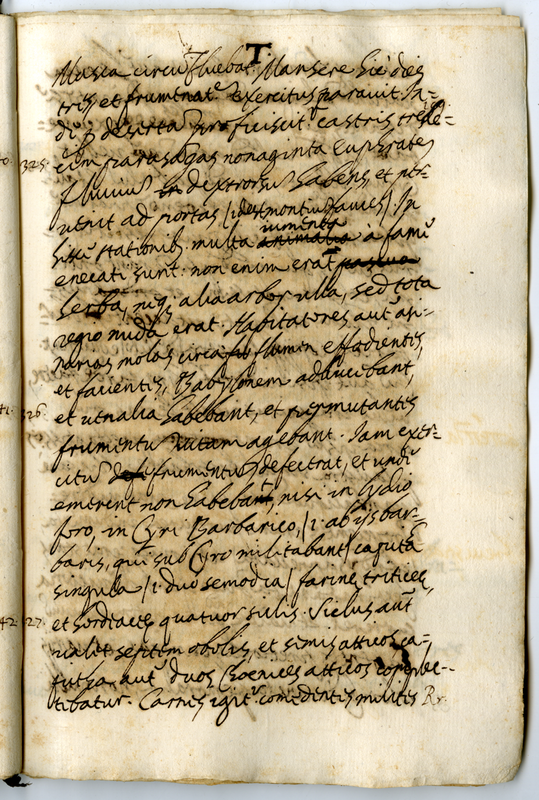 T
Masca circũfluebat. Mansere hic dies
tris et frumtnatº exercitus paravit. In-
di p deserta proficiscit castris trede-
cim parasagas nonaginta Euphraten
325. fluviũ dextrorsũ habens, et per-
venit ad portas /idest montiũ fauces/. In
hisce stationib. multa iumenta animalia à fame
enecati sunt. non enim erat pascua
herba, neqz alia arbos ulla, sed tota
regio nuda erat. Habitatores autẽ asi-
narias molas circa flumen effodientes,
et facientes, Babylonem adducebant,
326. et venalia habebant, et permutantes
frumentũ vitam agebant. Iam exer-
citũ frumentũ defecerat, et undẽ
emerent non habebant, nisi in lydio
foro, in Cyri Barbarico, /i. ab ijs bar-
baris, qui sub Cyro militabant/ capitha
singula /i. duo semodia/ farinę triticeę,
42 327. et hordaceę quatuor siclis. Siclus autẽ
valet septem obolis, et semis atticos ca-
pitha autẽ duos Choenices atticos
tibatur. Carnes igitʳ comedentes milites